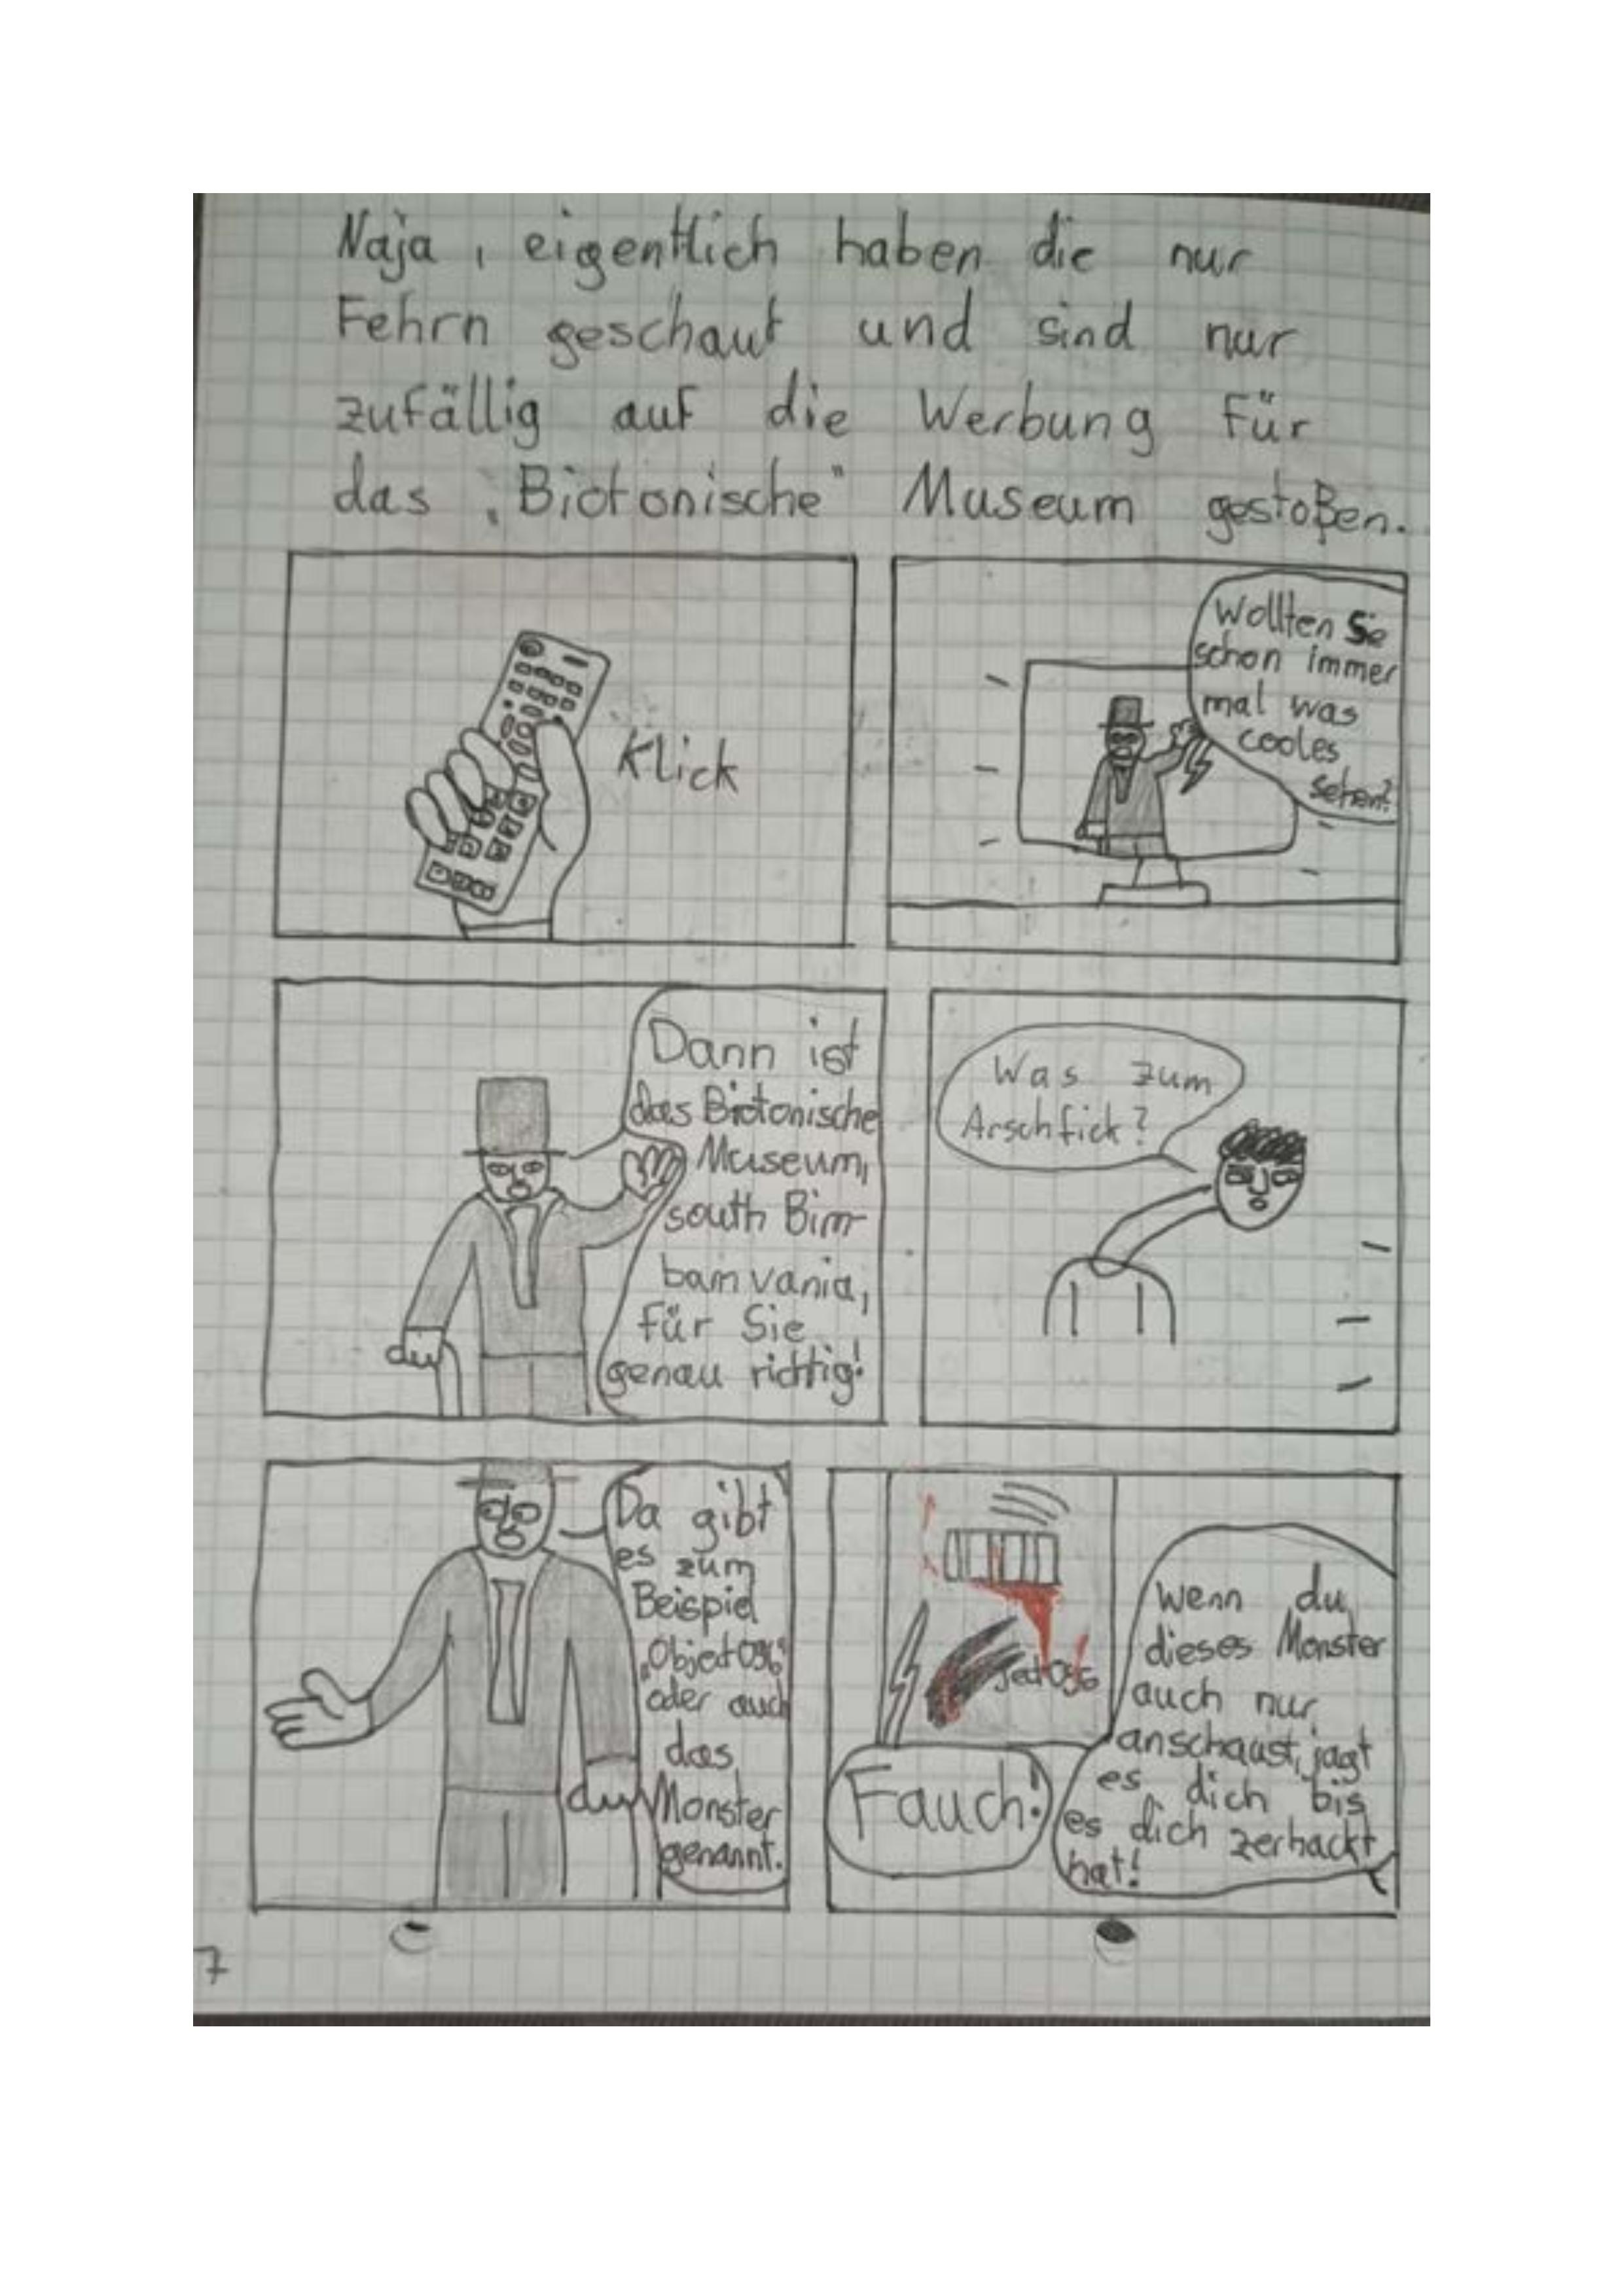 Naja, eigentlich haben die nur
Fehrn geschaut und sind nur
zufällig auf die Werbung für
das „Biotonische" Museum gestoßen.
Klick
Wollten Sie
schon immer
mal was
cooles
sehen?
Dann ist
das Biotonische
Museum,
south Bim-
bamvania,
für Sie
genau richtig!
Was zum
Arschfick?
Da gibt
es zum
Beispiel
„Object 096"
oder auch
das
Monster
genannt.
ject 096
Fauch!
Wenn du
dieses Monster
auch nur
anschaust, jagt
es dich bis
es dich zerhackt
hat!
7